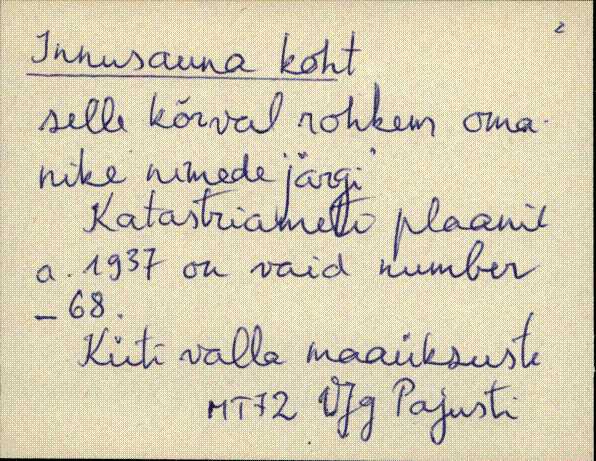 2
Innusauna koht
selle kõrval rohkem oma-
nike nimede järgi
Katastriameti plaanil
a. 1937 on vaid number
– 68.
Küti valla maaüksuste
MT72 VJg Pajusti